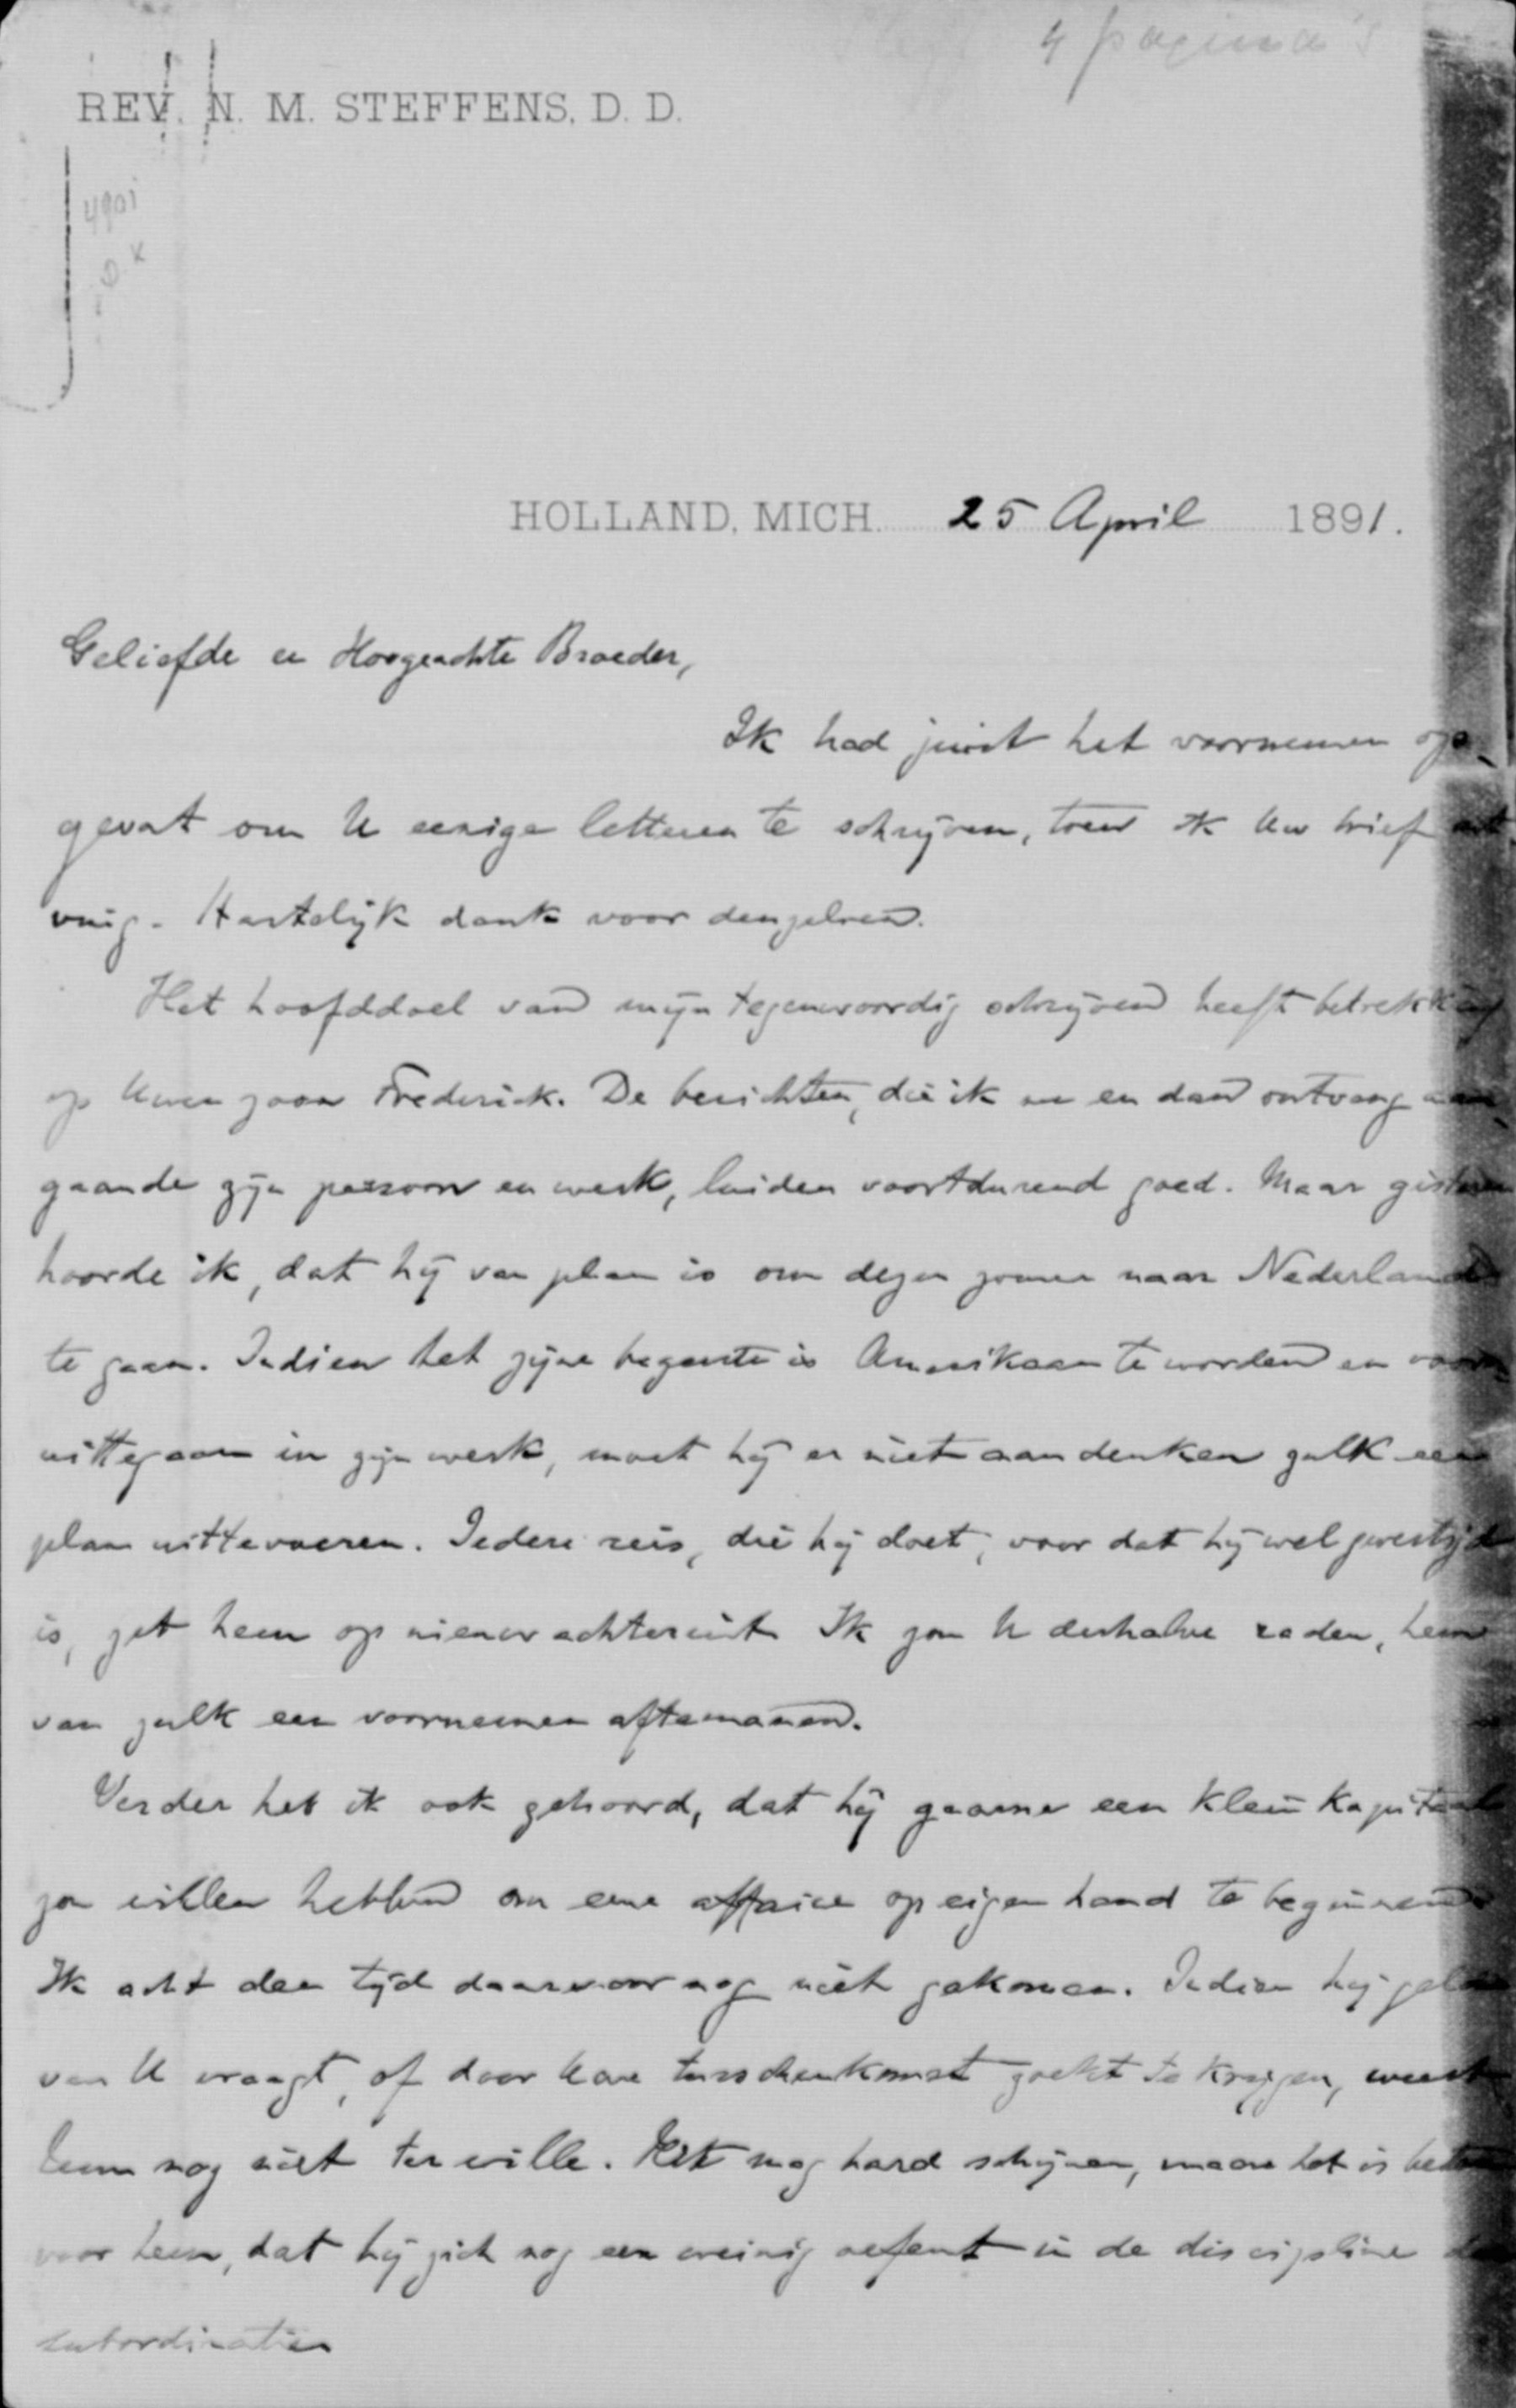 4 pagina's
REV. N. M. STEFFENS, D. D.
4901
D. K
HOLLAND, MICH. 25 April 1891.
Geliefde en Hoogeachte Broeder,
Ik had juist het voornemen op-
gevat om U eenige letteren te schrijven, toen ik Uw brief ont-
ving. Hartelijk dank voor denzelven.
Het hoofddoel van mijn tegenwoordig schrijven heeft betrekking
op Uwen zoon Frederick. De berichten, die ik nu en dan ontvang aan-
gaande zijn persoon en werk, luiden voortdurend goed. Maar gisteren
hoorde ik, dat hij van plan is om dezen zomer naar Nederland
te gaan. Indien het zijne begeerte is Amerikaan te worden en voor-
uittegaan in zijn werk, moet hij er niet aan denken zulk een
plan uittevoeren. Iedere reis, die hij doet, voor dat hij wel gevestigd
is, zet hem op nieuw achteruit. Ik zou U derhalve raden, hem
van zulk een voornemen aftemanen.
Verder heb ik ook gehoord, dat hij gaarne een klein kapitaal
zou willen hebben om eene affaire op eigen hand te beginnen.
Ik acht den tijd daarvoor nog niet gekomen. Indien hij geld
van U vraagt, of door Uwe tusschenkomst zoekt te krijgen, weest
hem nog niet ter wille. Het mag hard schijnen, maar het is beter
voor hem, dat hij zich nog een weinig oefent in de discipline der
subordinatie